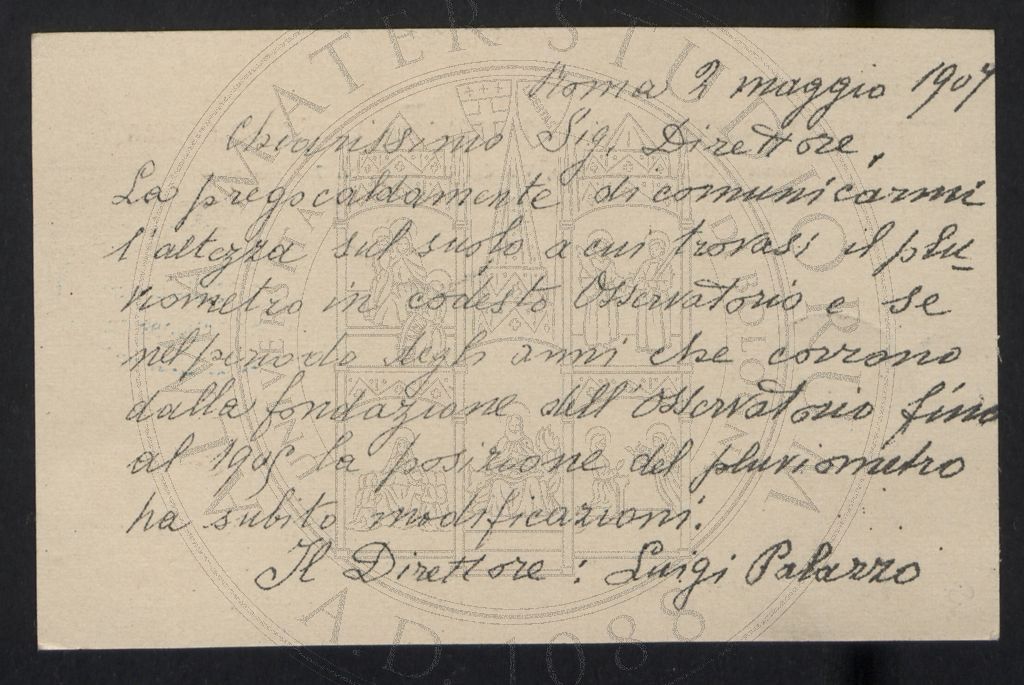 Roma 2 maggio 1907
Chiarissimo Sig. Direttore,
La prego caldamente di comunicarmi
l'altezza sul suolo a cui trovasi il plu-
viometro in codesto Osservatorio e se
nel periodo degli anni che corrono
dalla fondazione dell'Osservatorio fino
al 1905 la posizione del pluviometro
ha subito modificazioni.
Il Direttore: Luigi Palazzo
ALMA MATER STUDIORUM
A.D. 1088